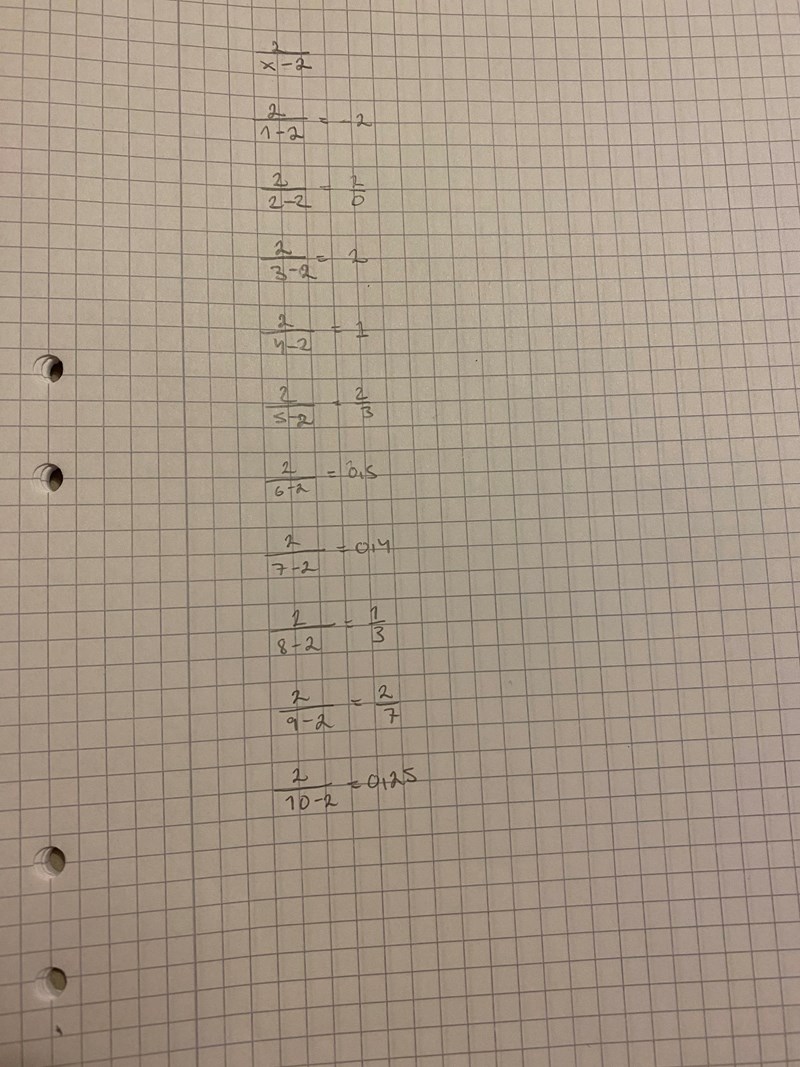 2/(x-2)
2/(1-2) = -2
2/(2-2) = 2/0
2/(3-2) = 2
2/(4-2) = 1
2/(5-2) = 2/3
2/(6-2) = 0,5
2/(7-2) = 0,4
2/(8-2) = 1/3
2/(9-2) = 2/7
2/(10-2) = 0,25